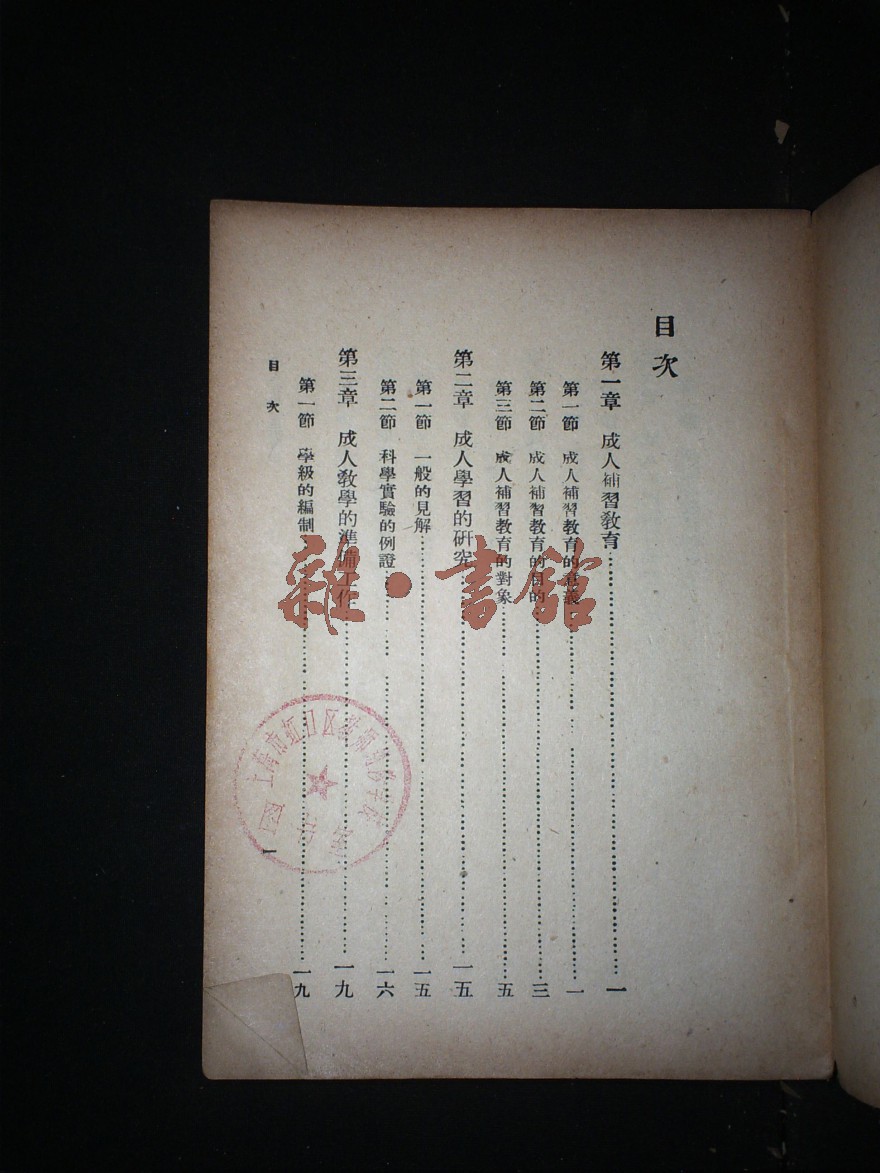 目次
第一章　成人補習敎育……一
第一節　成人補習敎育的意義……一
第二節　成人補習敎育的目的……三
第三節　成人補習敎育的對象……五
第二章　成人學習的研究……一五
第一節　一般的見解……一五
第二節　科學實驗的例證……一六
第三章　成人敎學的準備工作……一九
第一節　學級的編制……一九
目次
一
雜·書館
上海市虹口区
图書